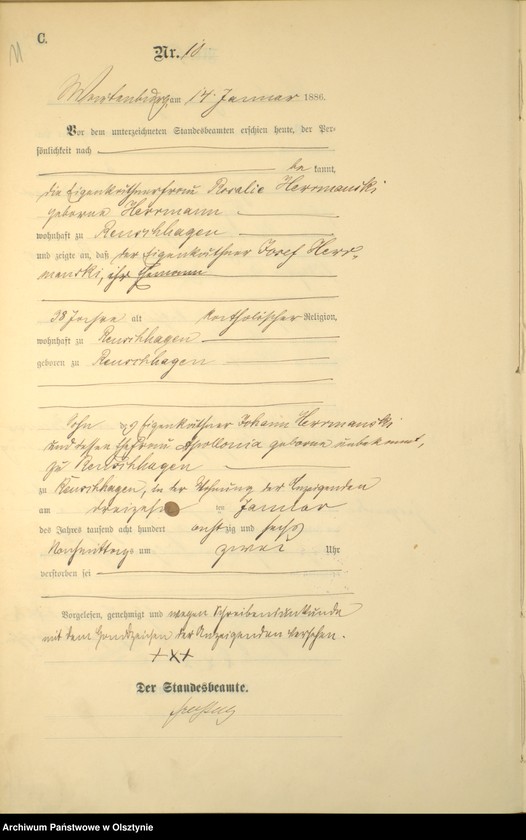 C.
11
Nr. 10
Wartenburg am 14 Januar 1886.
Vor dem unterzeichneten Standesbeamten erschien heute, der Per-
sönlichkeit nach
be kannt,
die Eigenkäthnerfrau Rosalie Herrmanski
geborne Herrmann
wohnhaft zu Reuschhagen
und zeigte an, daß der Eigenkäthner Josef Herr-
manski, ihr Ehemann
38 Jahre alt katholischer Religion,
wohnhaft zu Reuschhagen
geboren zu Reuschhagen
Sohn des Eigenkäthner Johann Herrmanski
und dessen Ehefrau Apollonia geborne unbekannt,
zu Reuschhagen
zu Reuschhagen, in der Wohnung der Anzeigenden
am dreizehn ten Januar
des Jahres tausend acht hundert achtzig und sechs
Nachmittags um zwei Uhr
verstorben sei
Vorgelesen, genehmigt und wegen Schreibensunkunde
mit dem Handzeichen der Anzeigenden versehen.
+ x +
Der Standesbeamte.
Archiwum Państwowe w Olsztynie